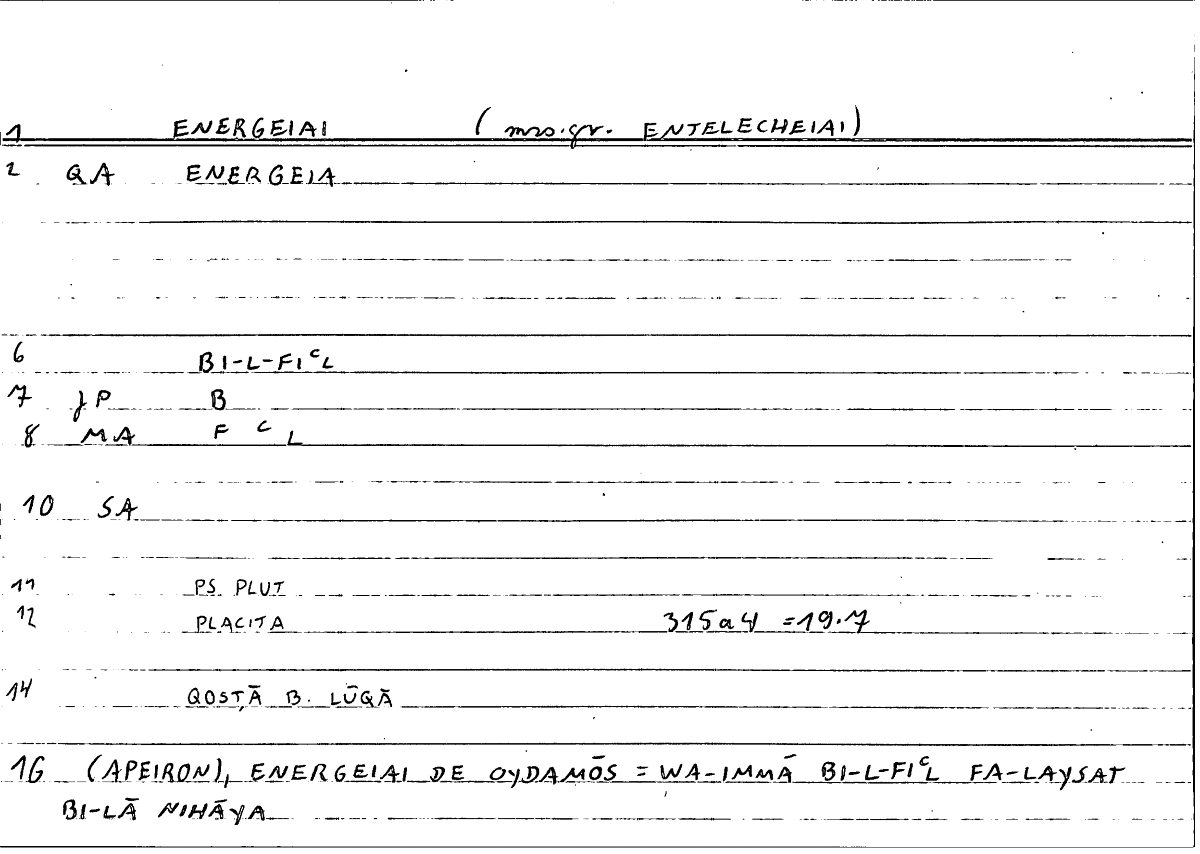 1 ENERGEIAI (mss.gr. ENTELECHEIAI)
2 QA ENERGEIA
6 BI-L-FIᶜL
7 JP B
8 MA F ᶜ L
10 SA
11 PS. PLUT
12 PLACITA 315a4 =19.7
14 QOSṬĀ B. LŪQĀ
16 (APEIRON), ENERGEIAI DE OYDAMŌS = WA-IMMĀ BI-L-FIᶜL FA-LAYSAT
BI-LĀ NIHĀYA